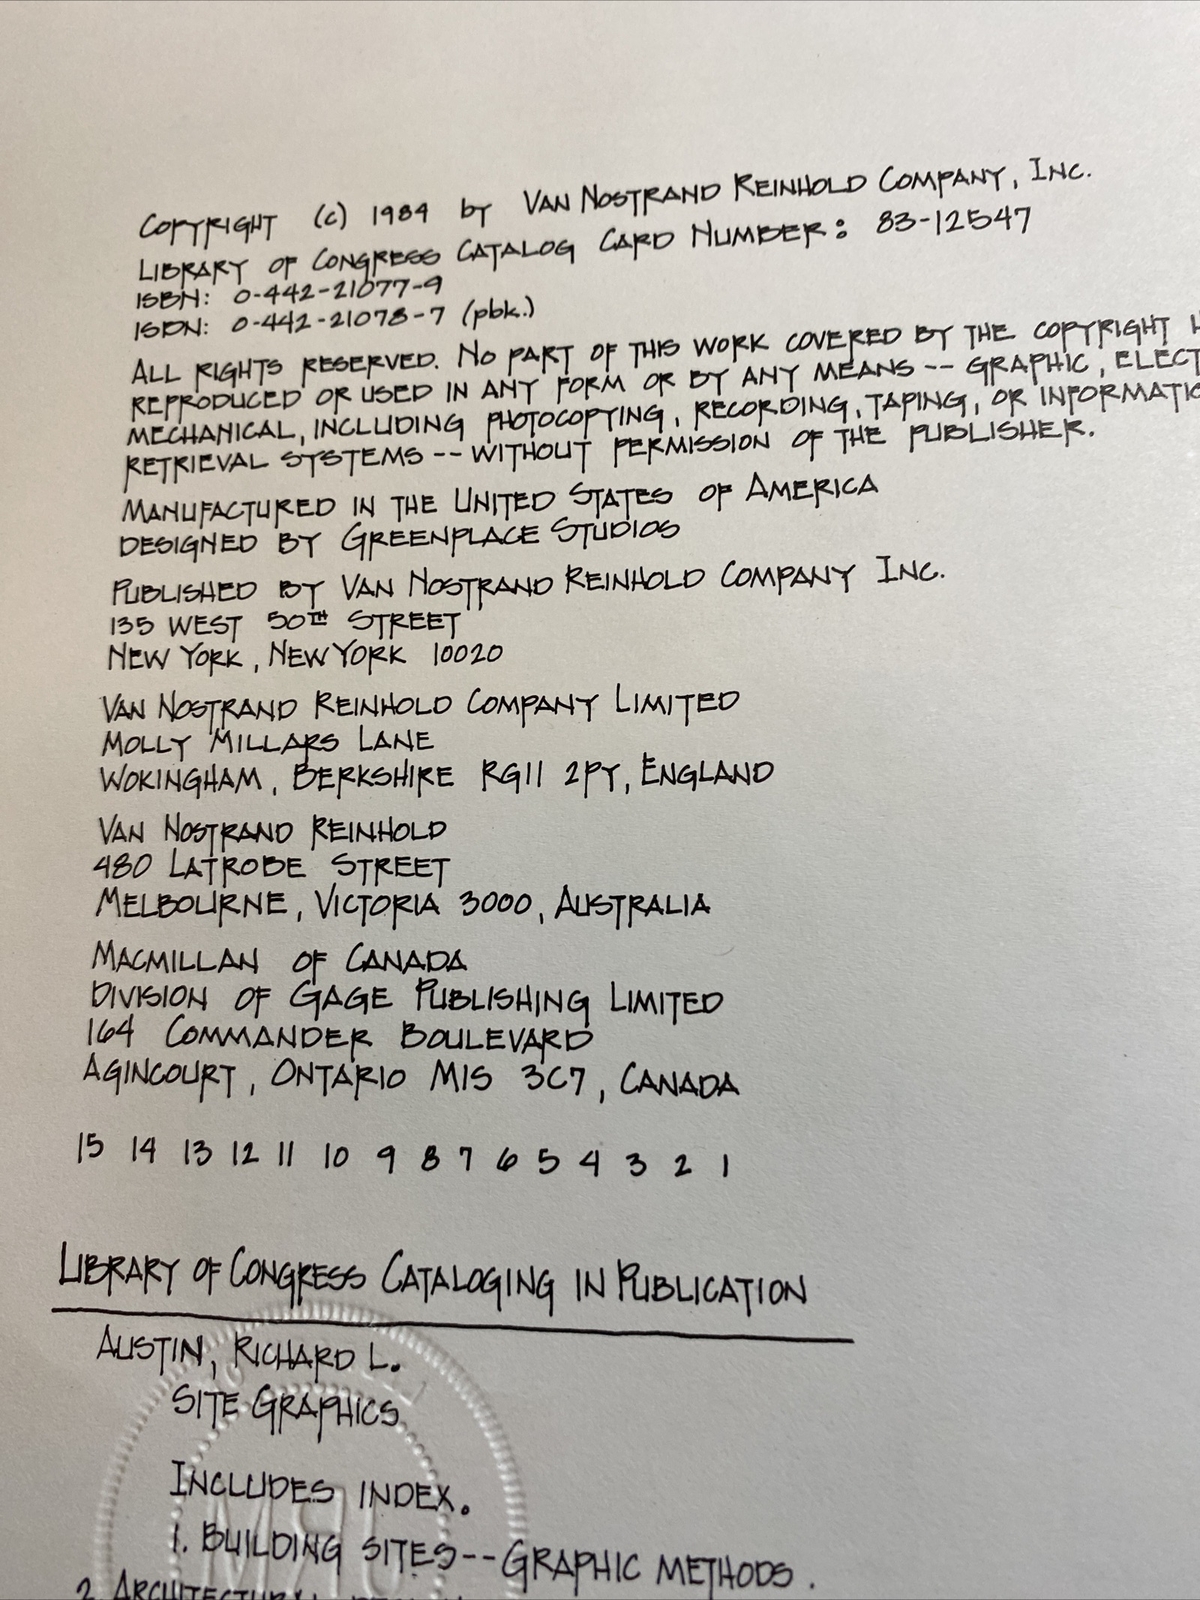 COPYRIGHT (c) 1984 by VAN NOSTRAND REINHOLD COMPANY, INC.
LIBRARY OF CONGRESS CATALOG CARD NUMBER: 83-12547
ISBN: 0-442-21077-9
ISBN: 0-442-21078-7 (pbk.)
ALL RIGHTS RESERVED. NO PART OF THIS WORK COVERED BY THE COPYRIGHT H
REPRODUCED OR USED IN ANY FORM OR BY ANY MEANS -- GRAPHIC, ELECT
MECHANICAL, INCLUDING PHOTOCOPYING, RECORDING, TAPING, OR INFORMATIO
RETRIEVAL SYSTEMS -- WITHOUT PERMISSION OF THE PUBLISHER.
MANUFACTURED IN THE UNITED STATES OF AMERICA
DESIGNED BY GREENPLACE STUDIOS
PUBLISHED BY VAN NOSTRAND REINHOLD COMPANY INC.
135 WEST 50TH STREET
NEW YORK, NEW YORK 10020
VAN NOSTRAND REINHOLD COMPANY LIMITED
MOLLY MILLARS LANE
WOKINGHAM, BERKSHIRE RG11 2PY, ENGLAND
VAN NOSTRAND REINHOLD
480 LATROBE STREET
MELBOURNE, VICTORIA 3000, AUSTRALIA
MACMILLAN OF CANADA
DIVISION OF GAGE PUBLISHING LIMITED
164 COMMANDER BOULEVARD
AGINCOURT, ONTARIO M1S 3C7, CANADA
15 14 13 12 11 10 9 8 7 6 5 4 3 2 1
LIBRARY OF CONGRESS CATALOGING IN PUBLICATION
AUSTIN, RICHARD L.
SITE GRAPHICS
INCLUDES INDEX.
1. BUILDING SITES--GRAPHIC METHODS.
2. ARCHITECTURAL